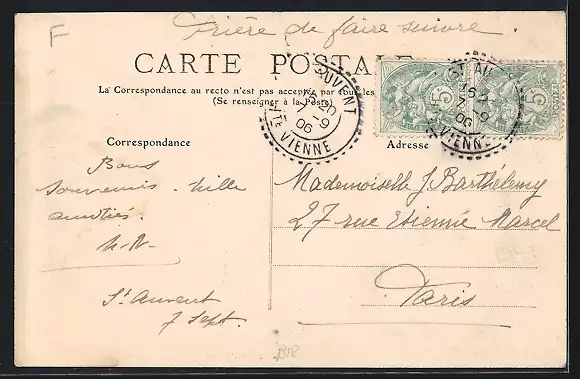 F
Prière de faire suivre.
CARTE POSTALE
La Correspondance au recto n'est pas acceptée par tous les
(Se renseigner à la Poste)
AUVENT
7-9
06
HTE VIENNE
ST AU
7-9
06
VIENNE
5
5
POSTES
Correspondance
Adresse
Bons
souvenirs. Mille
amitiés.
St Auvent
7 Sept.
Mademoiselle J. Barthélemy
27 rue Etienne Marcel
Paris
B18